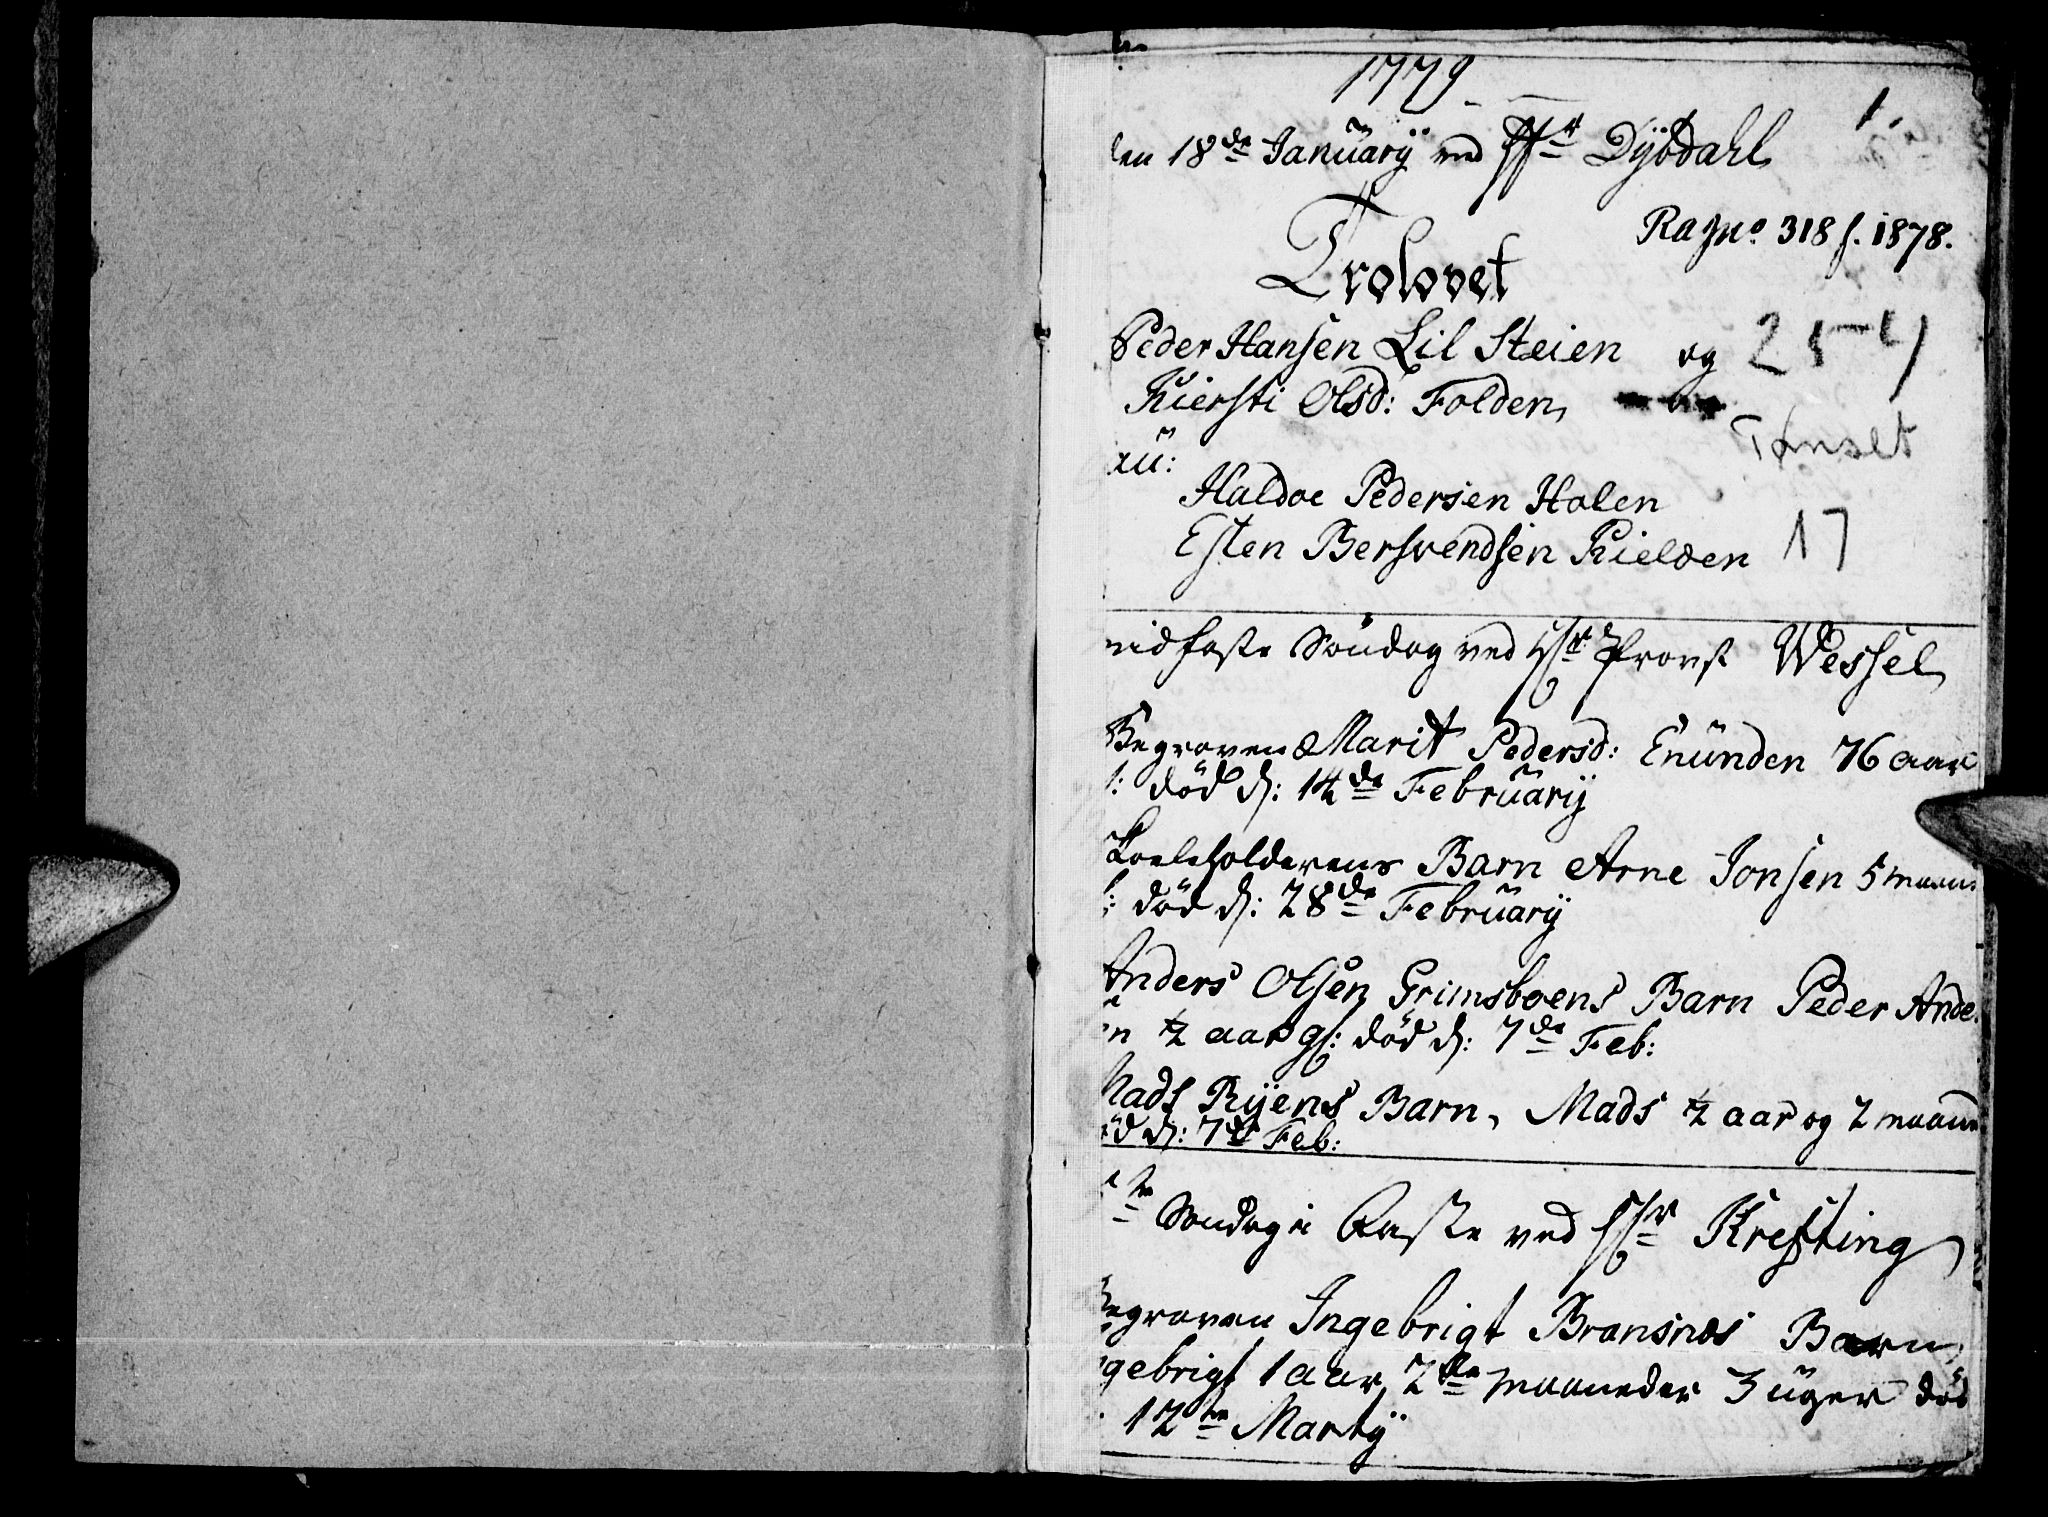 1779
1.
den 18de January ved Hr Dybdahl
Ragno. 318 f. 1878.
Trolovet
Peder Hansen Lil Steien og 254
Kiersti Olsd: Folden,
Tønset
Haldoe Pedersen Holen
Esten Bersvendsen Kielden 17
midfaste Søndag ved Hr Provst Wessel
Begraven Marit Pedersd: Enünden 76 aar
død d: 14de February
Barn Arne Jonsen 5 maan
død d: 28de February
Anders Olsen Grimsboens Barn Peder Ande
en 1/2 aar gl: død d: 7de Feb:
Mads Ryens Barn, Mads 1/2 aar og 2 maan
død d: 7de Feb:
Søndag i Faste ved Hr Krefting
Begraven Ingebrigt Bransnes Barn
gebrigt 1 aar 2de maaneder 3 uger død
12te Marty